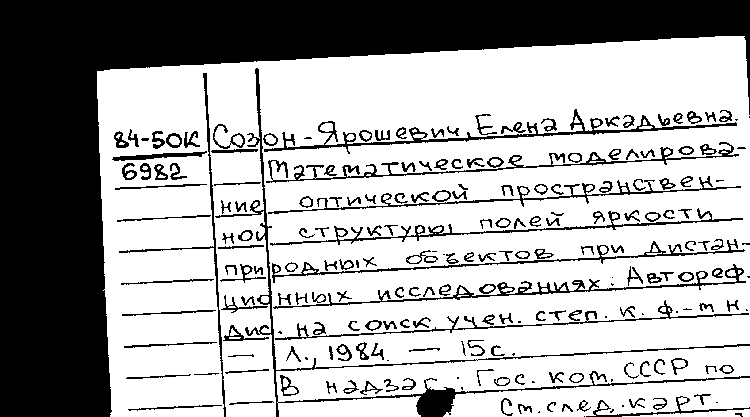 84-50К Созон-Ярошевич, Елена Аркадьевна.
6982 Математическое моделирова-
ние оптической пространствен-
ной структуры полей яркости
природных объектов при дистан-
ционных исследованиях: Автореф.
дис. на соиск. учен. степ. к. ф.-т н.
— Л., 1984. — 15с.
В надзаг.: Гос. ком. СССР по
См. след. карт.